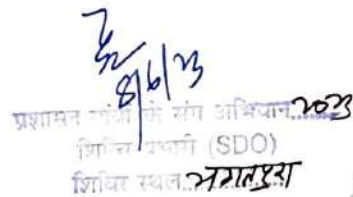 8/6/23
प्रशासन गांवों के संग अभियान 2023
शिविर प्रभारी (SDO)
शिविर स्थल भगतपुरा